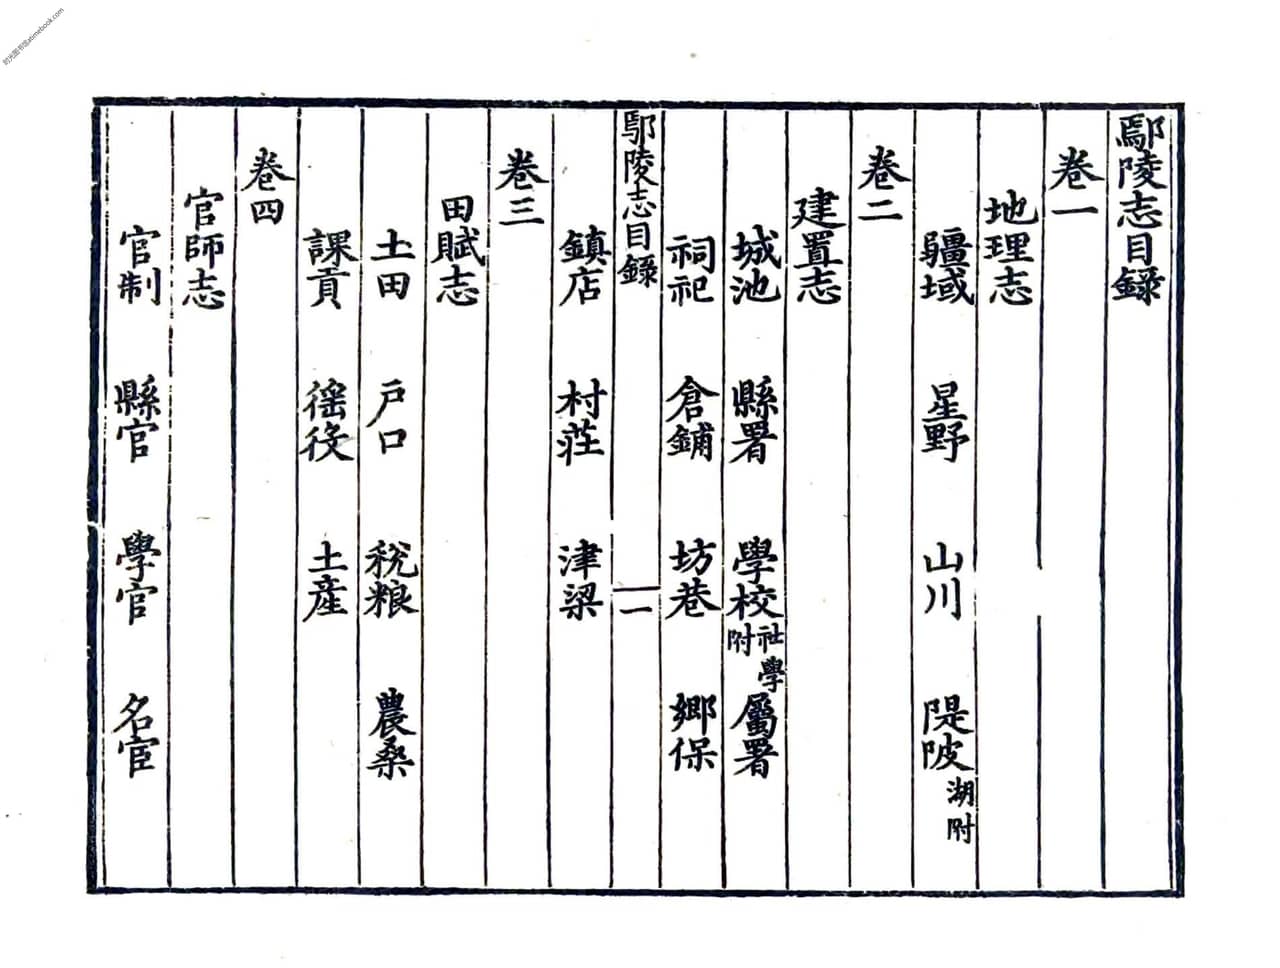 鄢陵志目錄
卷一
地理志
疆域 星野 山川 隄陂湖附
卷二
建置志
城池 縣署 學校社學附 屬署
祠祀 倉鋪 坊巷 鄉保
鄢陵志目錄 一
鎮店 村莊 津梁
卷三
田賦志
土田 戶口 稅粮 農桑
課貢 徭役 土産
卷四
官師志
官制 縣官 學官 名宦
时光图书馆atimebook.com